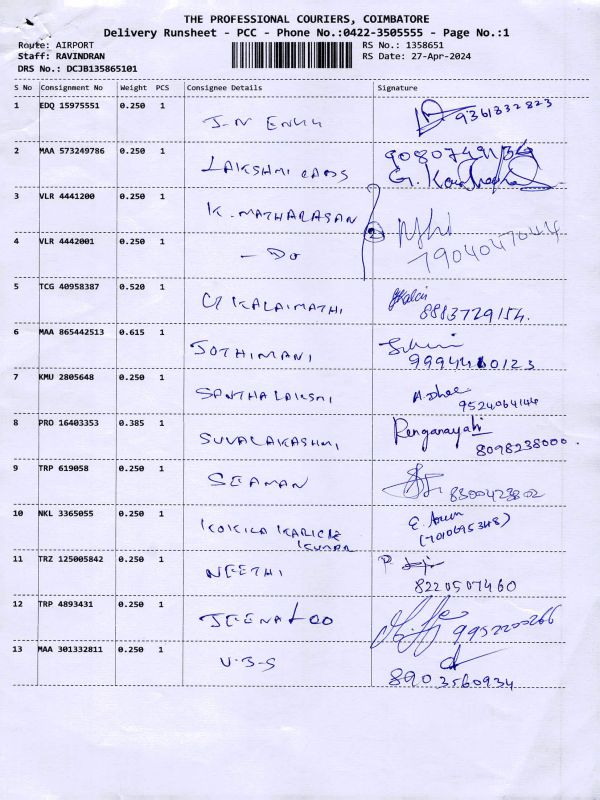 THE PROFESSIONAL COURIERS, COIMBATORE
Delivery Runsheet - PCC - Phone No.:0422-3505555 - Page No.:1
Route: AIRPORT RS No.: 1358651
Staff: RAVINDRAN RS Date: 27-Apr-2024
DRS No.: DCJB135865101
S No Consignment No Weight PCS Consignee Details Signature
1 EDQ 15975551 0.250 1 J-N 9361332823
2 MAA 573249786 0.250 1 LAKSHMI
G.
3 VLR 4441200 0.250 1 K. MATHARASAN
4 VLR 4442001 0.250 1 - Do 2 7904047044
5 TCG 40958387 0.520 1 KALAIMATHI 8883729154.
6 MAA 865442513 0.615 1 JOTHIMANI
7 KMU 2805648 0.250 1 SANTHALAKSMI 9524064144
8 PRO 16403353 0.385 1 SUVALAKASHMI Renganayaki
8098238000.
9 TRP 619058 0.250 1 SEAMAN 8300423802
10 NKL 3365055 0.250 1 KOKILA E. Arun
KUMAR (7010695348)
11 TRZ 125005842 0.250 1 NEETHI P.
8220507460
12 TRP 4893431 0.250 1 9952200266
13 MAA 301332811 0.250 1 U.B-S
8903560934